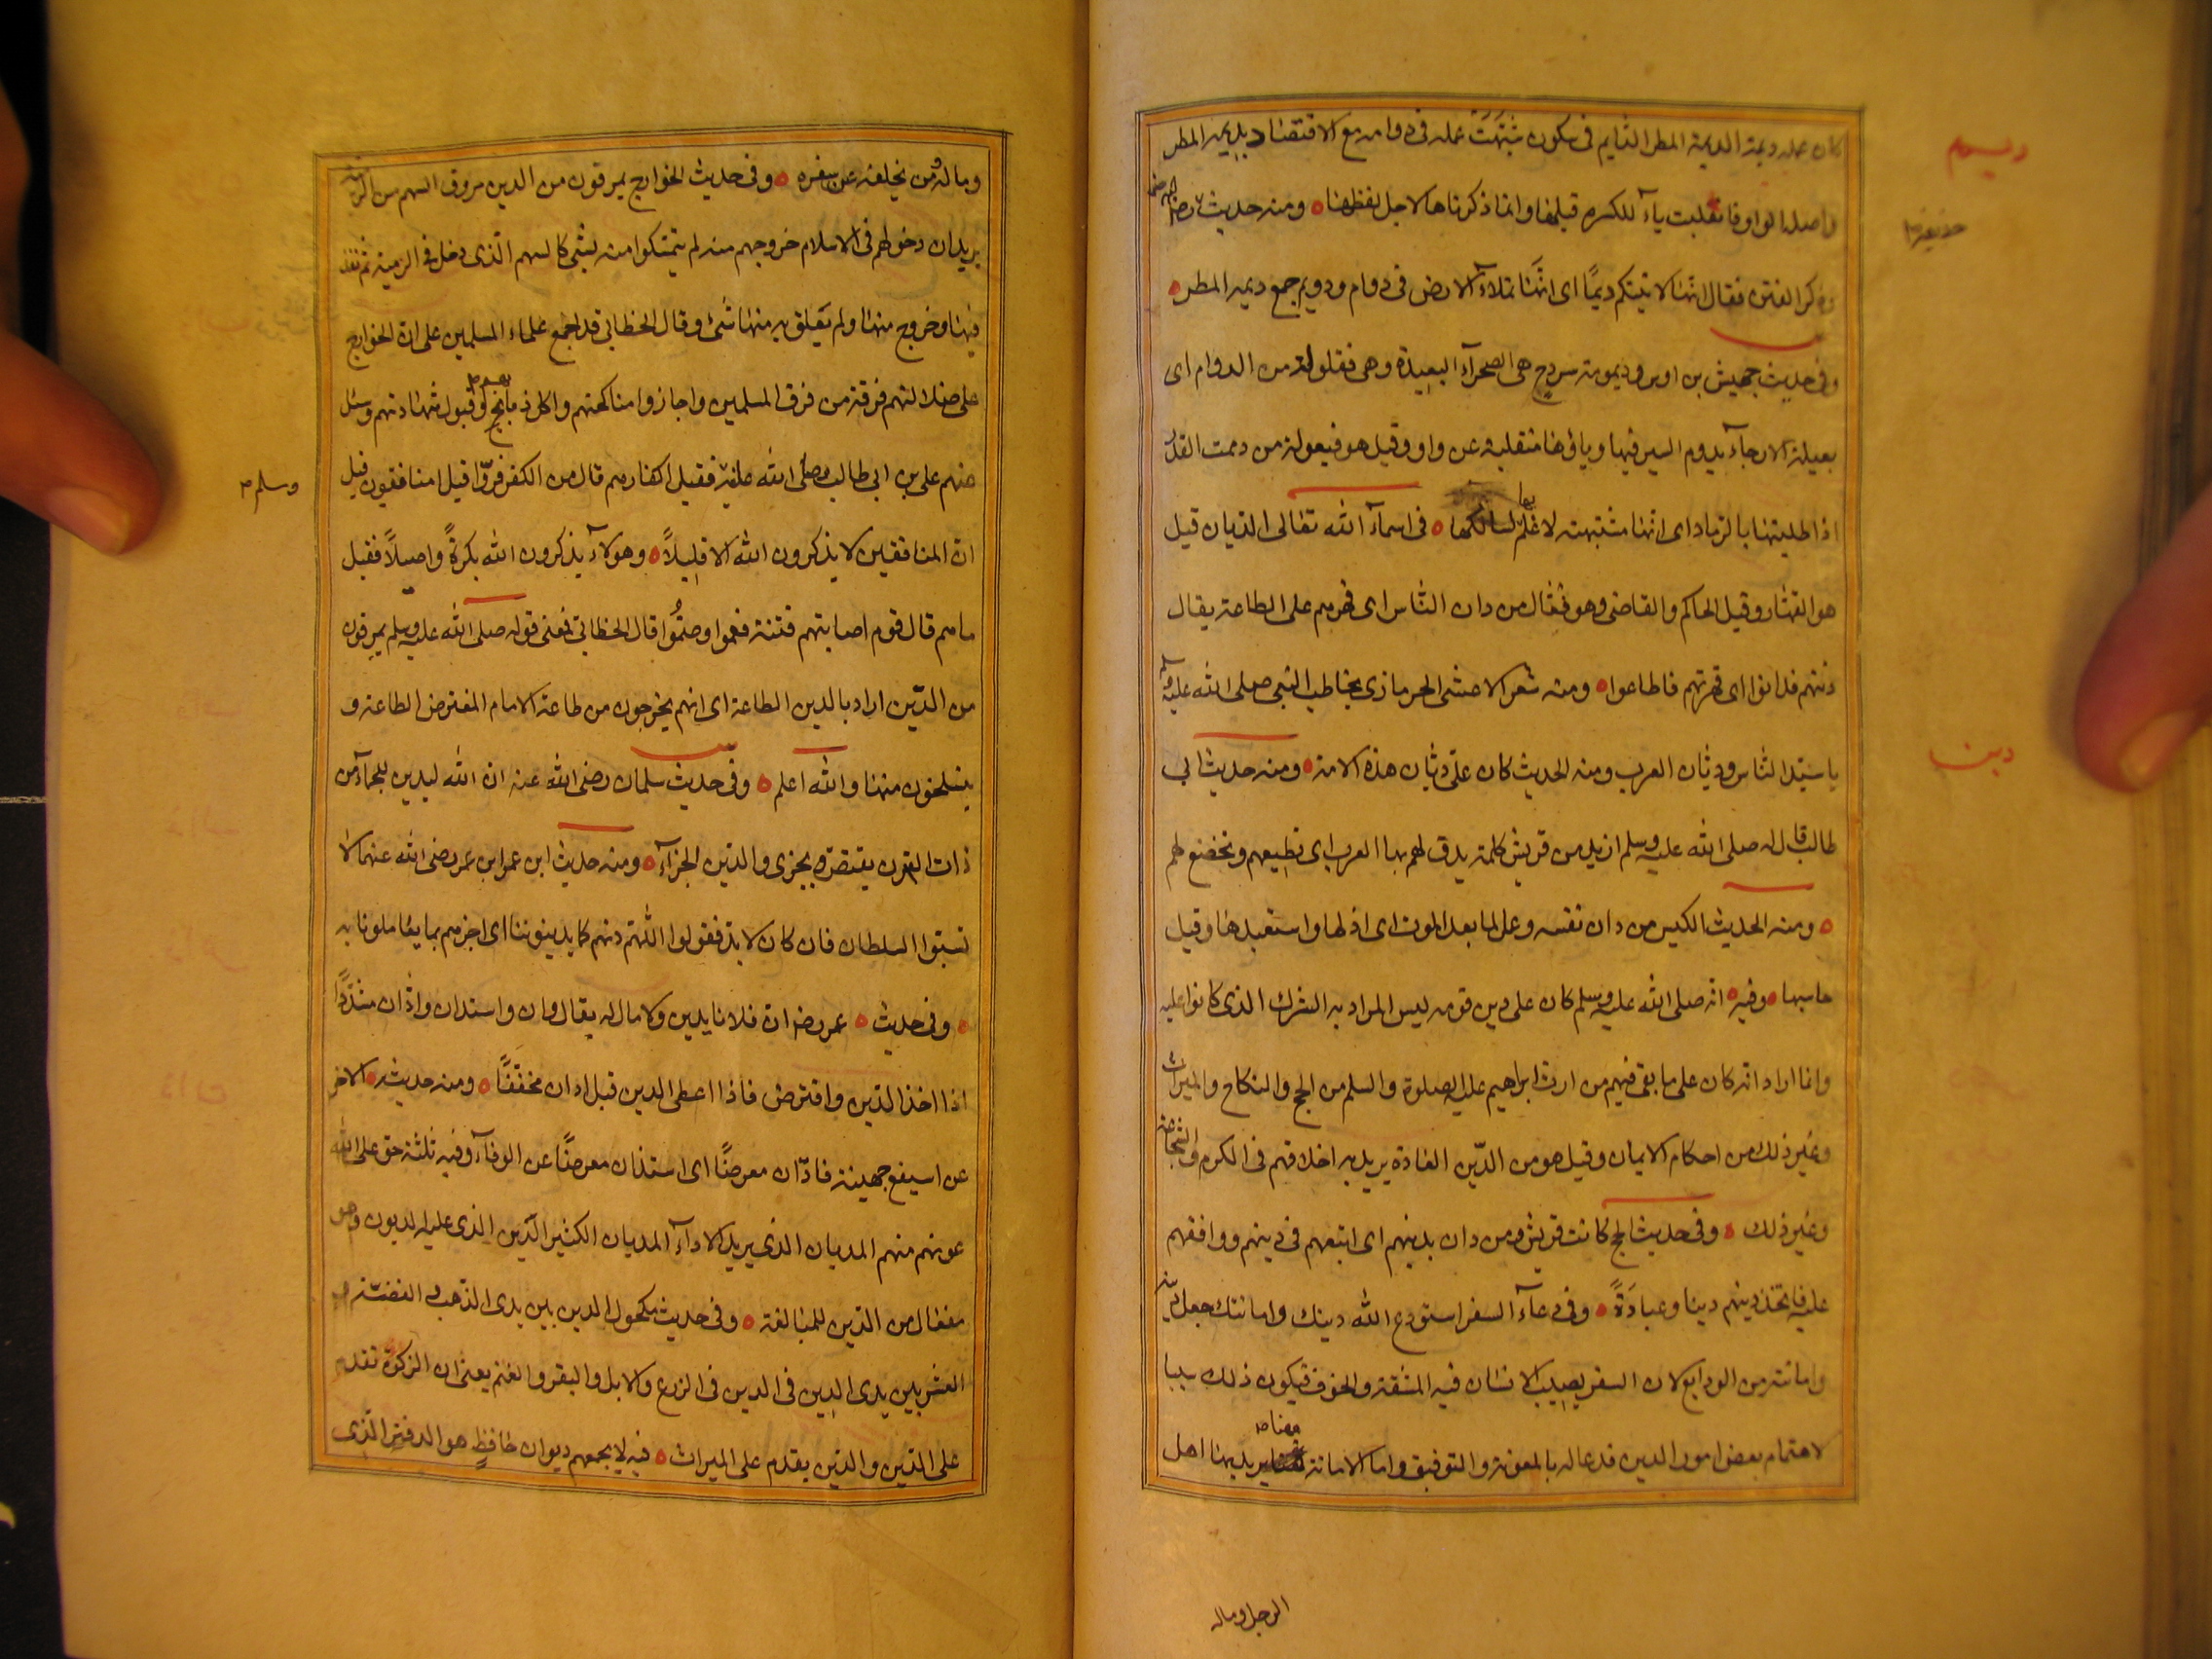 كان عمله ديمة الديمة المطر الدّايم فى سكون شبّهت عمله فى دوامه مع الاقتصاد بديمة المطر
ديم
واصله الواو فانقلبت ياءً للكسره قبلها وانما ذكرناها لاجل لفظها ومنه حديث
حذيفة
وذكر الفتن فقال انها لاتيتكم ديمًا اى انّها تملاء الارض فى دوام وديم جمع ديمة المطر
وفى حديث جهيش بن اوس وديمومة سردح هى الصحراء البعيدة وهى فعلولة من الدوام اى
بعيدة الارجاء يدوم السير فيها وياؤها منقلبة عن واو وقيل هو فيعولة من دممت القدر
اذا طليتها بالرماد اى انها مشتبهة لا علم بها لسالكها فى اسماء الله تعالى الديان قيل
هو القهّار وقيل الحاكم والقاضى وهو فعّال من دان النّاس اى قهرهم على الطاعة يقال
دنتهم فدانوا اى قهرتهم فاطاعوا ومنه شعر الاعشى الحرمازى يخاطب النبى صلى الله عليه وآله
يا سيّد النّاس وديّان العرب ومنه الحديث كان علىّ ديّان هذه الامة ومنه حديث ابى
دين
طالب قال له صلى الله عليه وسلم اريد من قريش كلمة يدين لهم بها العرب اى تطيعهم وتخضع لهم
ومنه الحديث الكيس من دان نفسه وعمل لما بعد الموت اى اذلها واستعبدها وقيل
حاسبها وفيه انه صلى الله عليه وسلم كان على دين قومه ليس المراد به الشرك الذى كانوا عليه
وانما اراد انه كان على ما بقى فيهم من ارث ابراهيم عليه الصلوة والسلم من الحج والنكاح والميراث
وغير ذلك من احكام الايمان وقيل هو من الدّين العادة يريد به اخلاقهم فى الكرم والشجاعة
وغير ذلك وفى حديث الحج كانت قريش ومن دان بدينهم اى اتبعهم فى دينهم ووافقهم
عليه فاتخذ دينهم دينا وعبادَةً وفى دعاء السفر استودع الله دينك وامانتك جعل دينه
وامانته من الودايع لان السفر يصيب الانسان فيه المشقة والخوف فيكون ذلك سببا
لاهتمام بعض امور الدين فدعا له بالمعونة والتوفيق واما الامانة ههنا يريد بها اهل
الرجل وماله
وماله ومن يخلفه عن سفره وفى حديث الخوارج يمرقون من الدين مروق السهم من الرمية
يريد ان دخولهم فى الاسلام خروجهم منه لم يتمسكوا منه بشئ كالسهم الّذى دخل فى الرمية ثم نفذ
فيها وخروج منها ولم يعلق به منها شئ وقال الخطابى قد اجمع علماء المسلمين على انّ الخوارج
على ضلالتهم فرقة من فرق المسلمين واجازوا مناكحتهم واكل ذبائحهم وقبول شهادتهم وسئل
عنهم على بن ابى طالب صلى الله عليه فقيل اكفار هم قال من الكفر فرّوا قيل امنافقون قيل
وسلم
انّ المنافقين لا يذكرون الله الا قليلاً وهولاء يذكرون الله بكرةً واصيلاً فقيل
ما هم قال قوم اصابتهم فتنة فعموا وصمُّوا قال الخطابى فعنى قوله صلى الله عليه وسلم يمرقون
من الدّين اراد بالدين الطاعة اى انهم يخرجون من طاعة الامام المفترض الطاعة و
ينسلخون منها والله اعلم وفى حديث سلمان رضى الله عنه ان الله ليدين للجمّاء من
ذات القرن يقتص ويجزى والدّين الجزاء ومنه حديث ابن عمرو ابن عمر رضى الله عنهما لا
تسبّوا السلطان فان كان لابدّ فقولوا اللّهم دنهم كما يدينوننا اى اجزهم بما يعاملونا به
وفى حديث عمر رضه انّ فلانا يدين ولا مال له يقال دان واستدان وادّان مشدّدًا
اذا اخذ الدّين واقترض فاذا اعطى الدين قيل ادان مخففًا ومنه حديثه الاخر
عن اسيفع جهينة فادّان معرضًا اى استدان معرضًا عن الوفاء وفيه ثلثة حق على الله
عونهم منهم المديان الذى يريد الاداء المديان الكثير الدّين الذى عليه الديون وهو
مفعال من الدّين للمبالغة وفى حديث مكحول الدين بين يدى الذهب والفضة
العشر بين يدى الدين فى الدين فى الزرع والابل والبقر والغنم يعنى ان الزكوة تقدم
على الدّين والدّين يقدم على الميراث فيه لا يجمعهم ديوان حافظٍ هو الدفتر الّذى